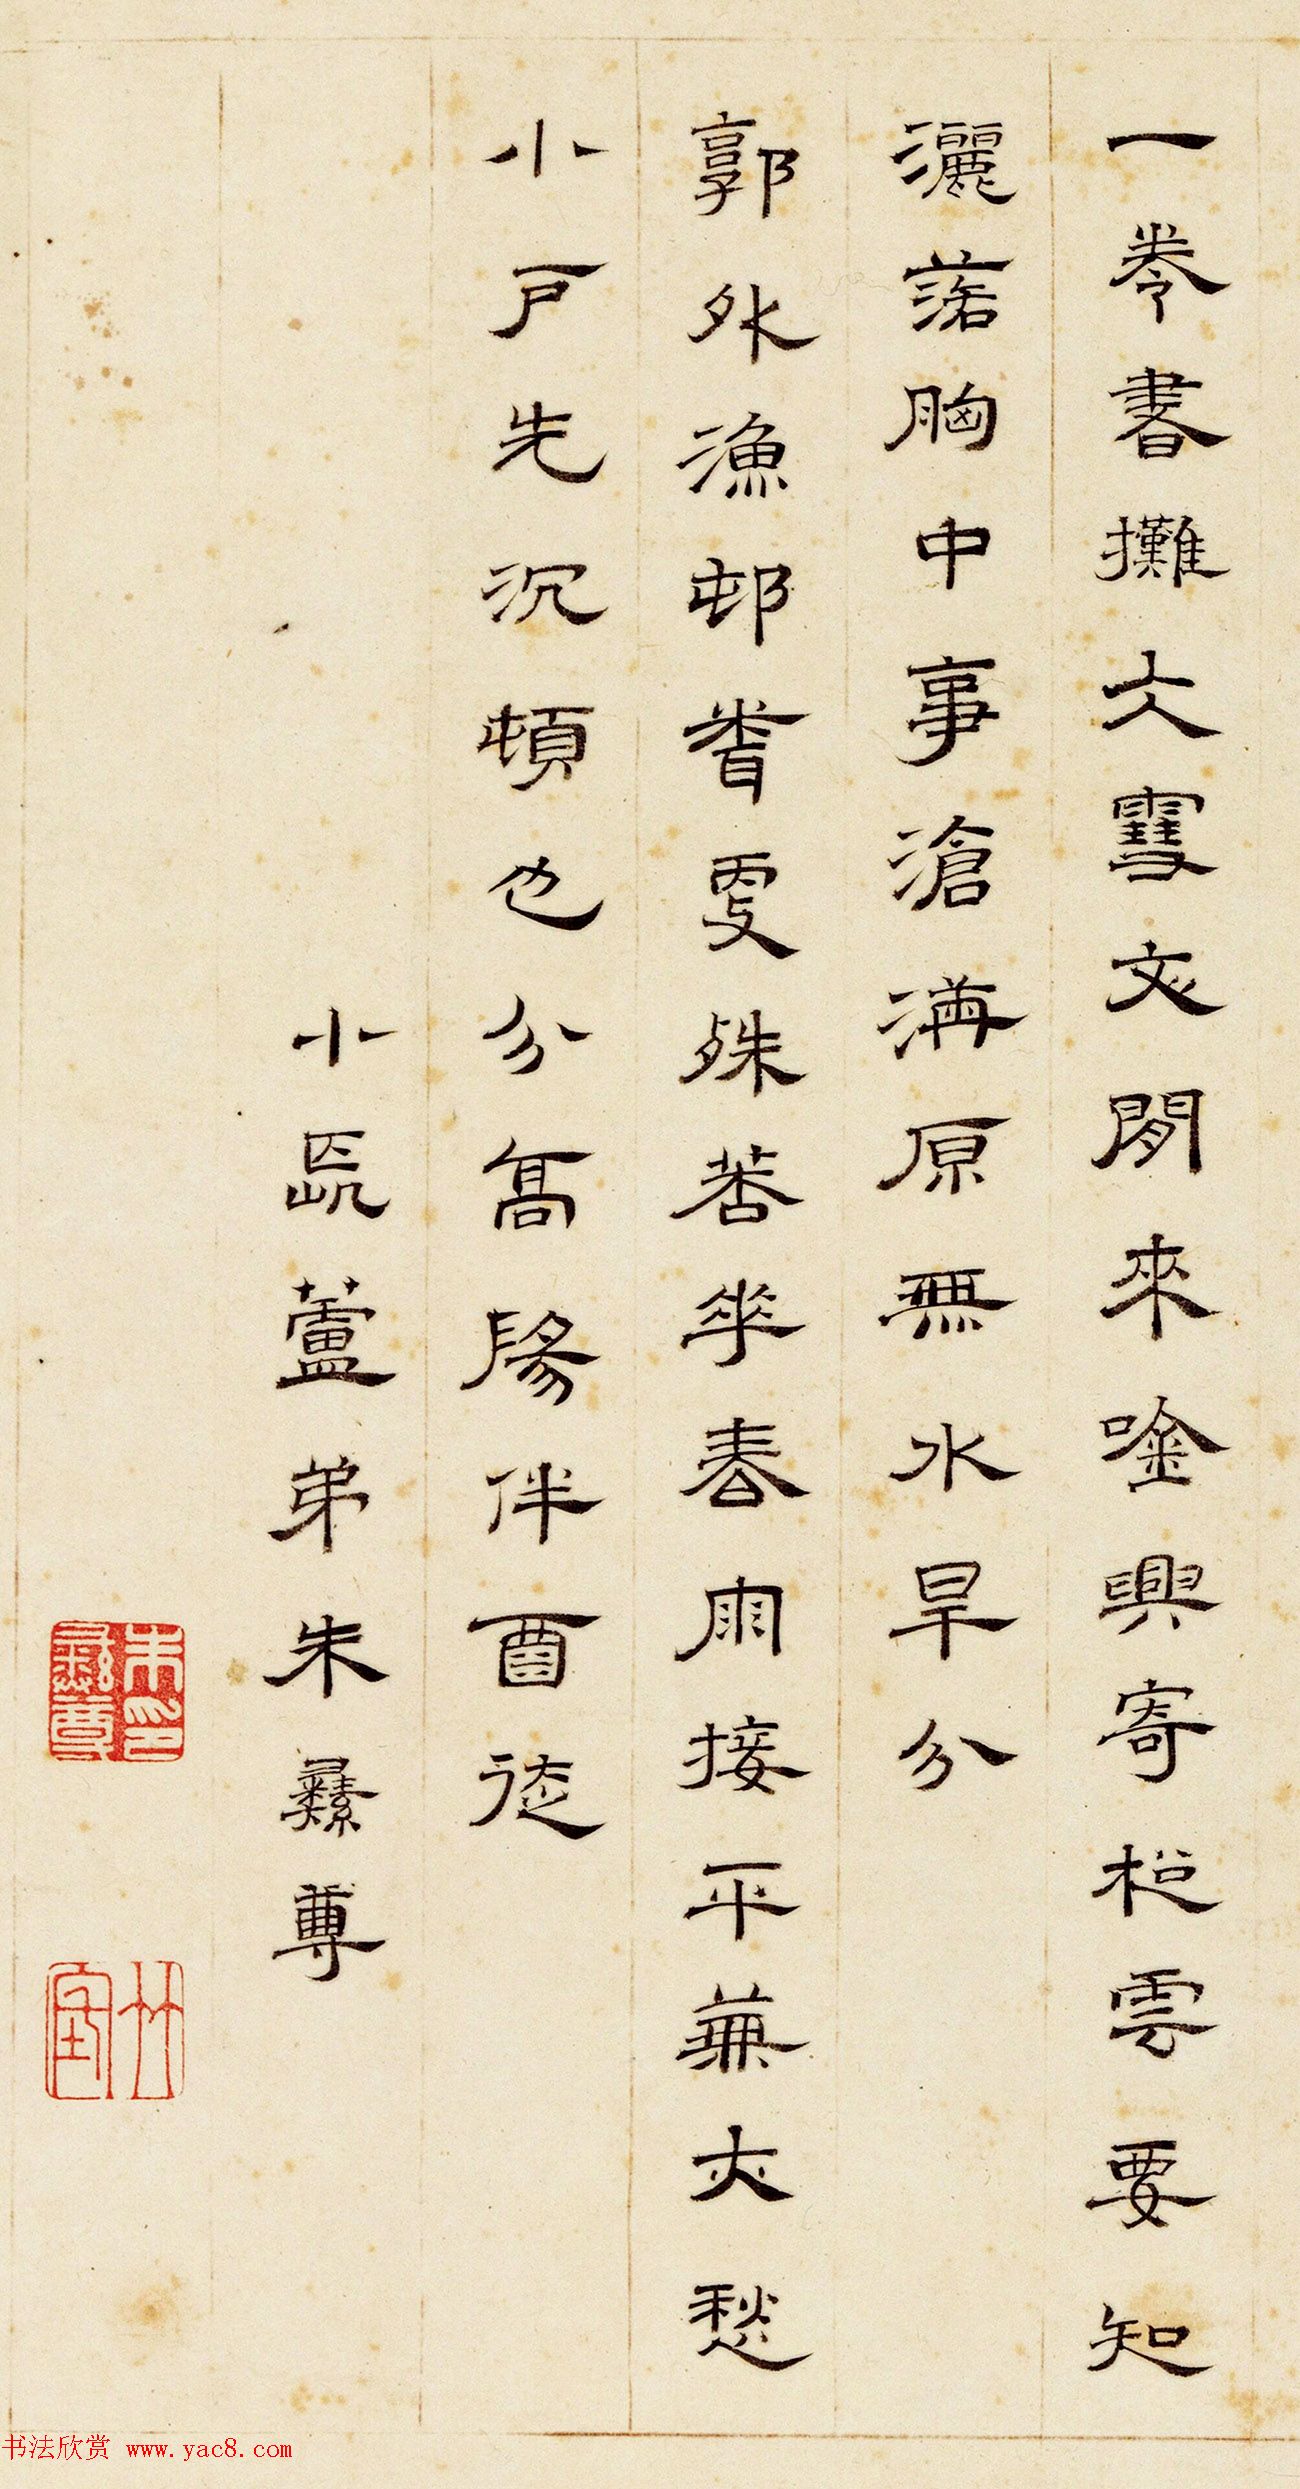 一卷書攤大雪文閒來唫興寄松雲要知
灑落胸中事滄海原無水旱分
郭外漁邨處殊莕華春雨接平蕪亦愁
小戶先沉頓也分高陽伴酉徒
小長蘆弟朱彝尊
朱印彝尊
竹垞
书法欣赏 www.yac8.com